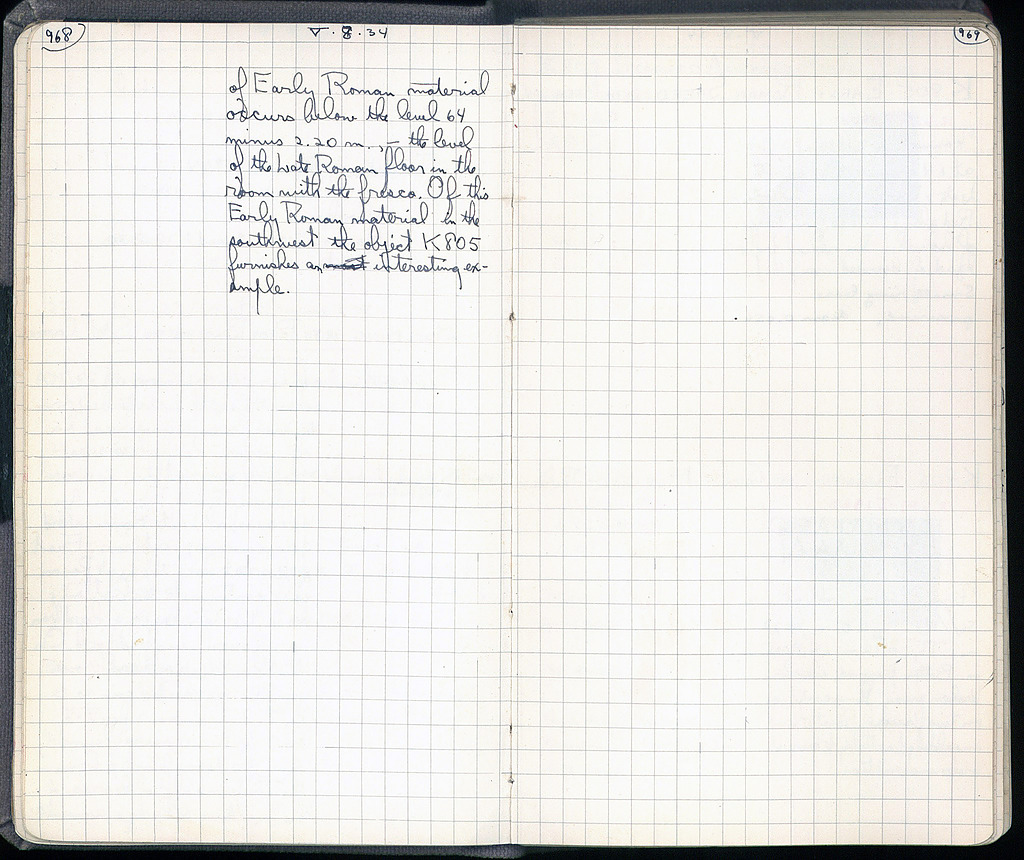 968
V.8.34
of Early Roman material
occurs below the level 64
minus 2.20 m., – the level
of the Late Roman floor in the
room with the fresco. Of this
Early Roman material in the
southwest the object K 805
furnishes an interesting ex-
ample.
969